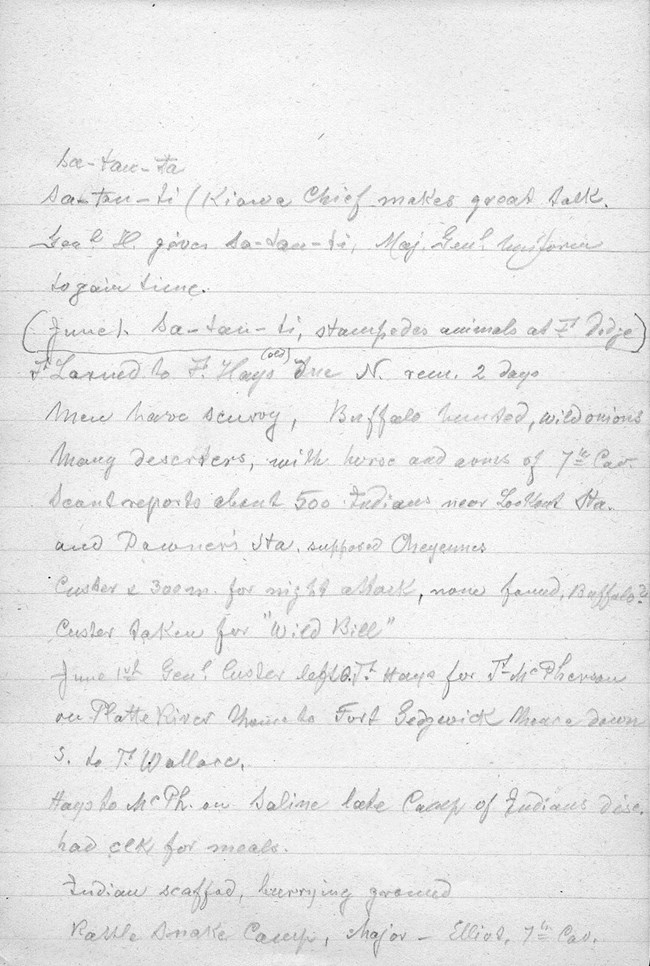 Sa-tan-ta
Sa-tan-ti (Kiowa Chief makes great talk.
Genl H. gives Sa-tan-ti, Maj. Genl Uniform
to gain time.
(June 1. Sa-tan-ti, stampedes animals at Ft Dodge)
Ft Larned to Ft Hays (old) Due N. rem. 2 days
Men have scurvy, Buffalo hunted, wild onions
Many deserters, with horse and arms of 7th Cav.
Scout reports about 500 Indians near Lookout Sta.
and Downer's Sta. supposed Cheyennes
Custer & 300 m. for night attack, none found. Buffalo?
Custer taken for "Wild Bill"
June 1st Genl Custer left O. Ft Hays for Ft McPherson
on Platte River thence to Fort Sedgwick thence down
S. to Ft Wallace.
Hays to McPh. on Saline late Camp of Indians disc.
had elk for meals.
Indian scaffod, burrying ground
Rattle Snake Camp, Major - Elliot, 7th Cav.